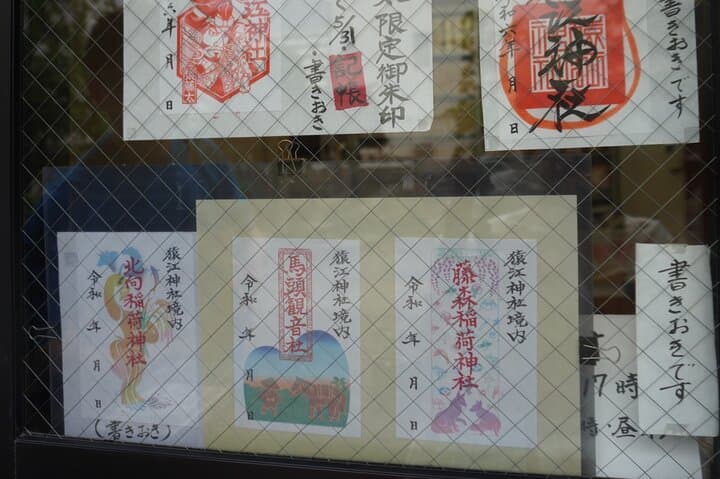 書きおきです
令和六年　月　日
江神社
六年　月　日
限定御朱印
5/31
記帳
・書きおき
猿江神社境内
藤森稲荷神社
令和　年　月　日
猿江神社境内
馬頭観音社
令和　年　月　日
猿江神社境内
北向稲荷神社
令和　年　月　日
(書きおき)
書きおきです
17時
昼